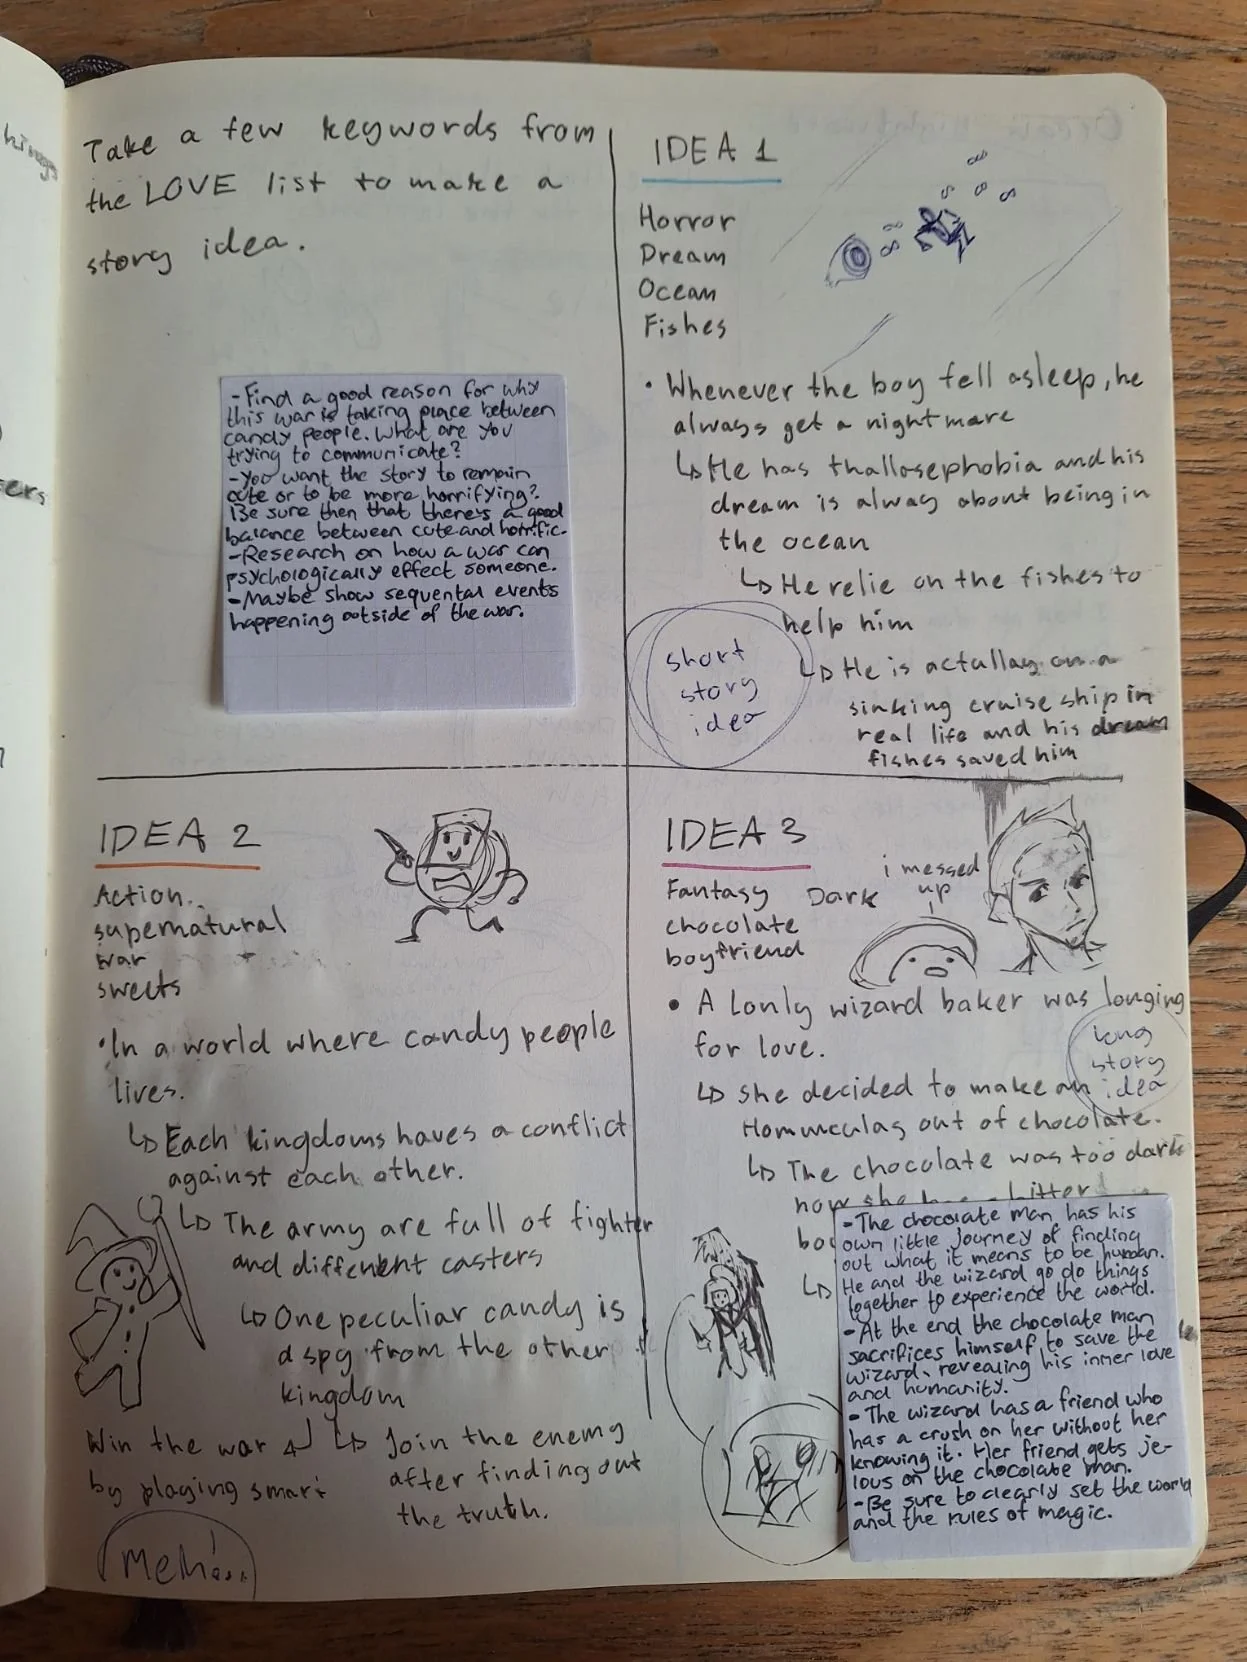 Take a few keywords from
the LOVE list to make a
story idea.
- Find a good reason for why
this war is taking place between
candy people. What are you
trying to communicate?
- You want the story to remain
cute or to be more horrifying?
Be sure then that there's a good
balance between cute and horrific.
- Research on how a war can
psychologically effect someone.
- Maybe show sequental events
happening outside of the war.
IDEA 1
Horror
Dream
Ocean
Fishes
• Whenever the boy fell asleep, he
always get a nightmare
↳ He has thallosephobia and his
dream is alway about being in
the ocean
↳ He relie on the fishes to
help him
↳ He is actullay on a
sinking cruise ship in
real life and his dream
fishes saved him
short
story
idea
IDEA 2
Action
supernatural
war
sweets
• In a world where candy people
lives.
↳ Each kingdoms haves a conflict
against each other.
↳ The army are full of fighter
and different casters
↳ One peculiar candy is
a spy from the other
kingdom
Win the war
by playing smart
↳ Join the enemy
after finding out
the truth.
IDEA 3
Fantasy Dark
chocolate
boyfriend
i messed
up
• A Lonly wizard baker was longing
for love.
long
story
idea
↳ she decided to make an
Homunculas out of chocolate.
↳ The chocolate was too dark
now she bitter
- The chocolate man has his
own little journey of finding
out what it means to be human.
He and the wizard go do things
together to experience the world.
- At the end the chocolate man
sacrifices himself to save the
wizard, revealing his inner love
and humanity.
- The wizard has a friend who
has a crush on her without her
knowing it. Her friend gets je-
lous on the chocolate man.
- Be sure to clearly set the world
and the rules of magic.